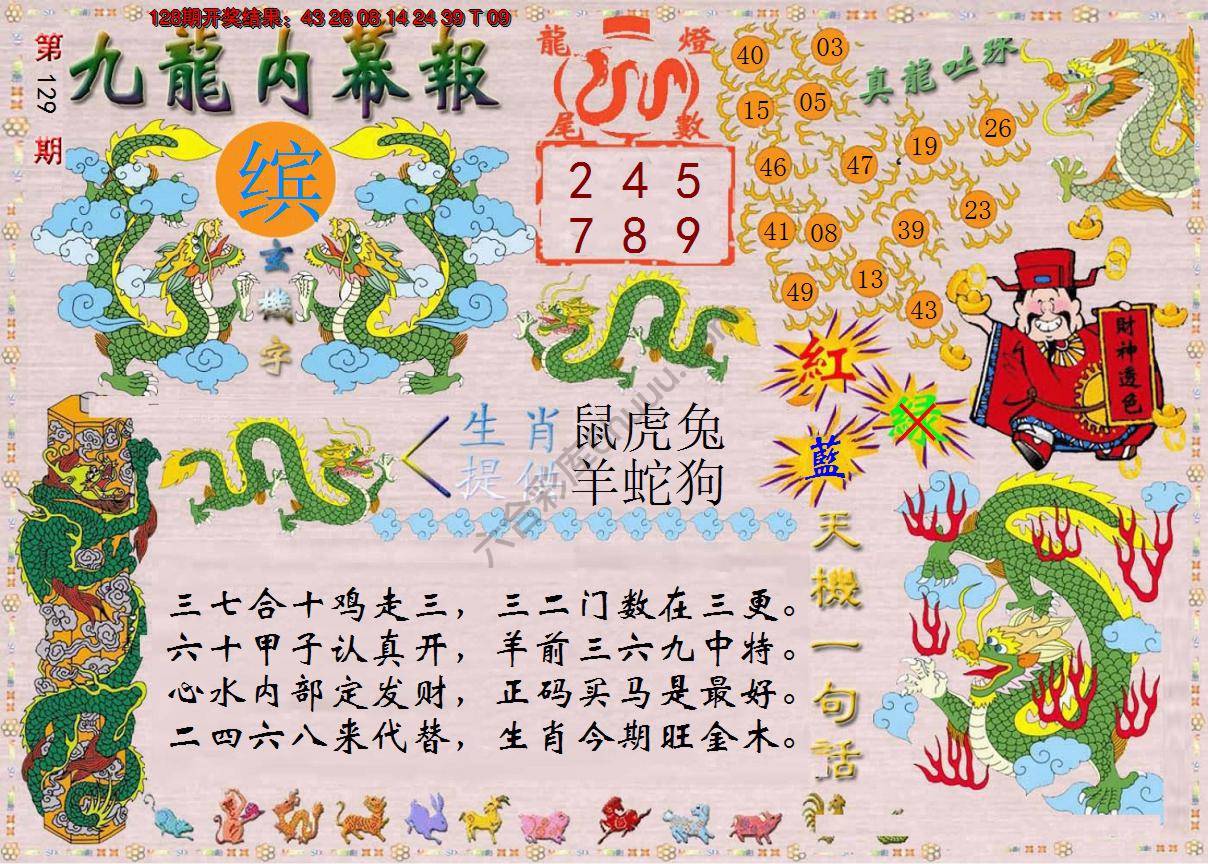 128期开奖结果：43 26 08 14 24 39 T 09
第129期
九龍内幕報
缤
玄機字
龍燈
尾數
2 4 5
7 8 9
真龍吐珠
40 03
15 05
46 47 19 26
41 08 39 23
49 13 43
財神透色
紅
綠
藍
生肖
提供
鼠虎兔
羊蛇狗
三七合十鸡走三，三二门数在三更。
六十甲子认真开，羊前三六九中特。
心水内部定发财，正码买马是最好。
二四六八来代替，生肖今期旺金木。
天機一句話